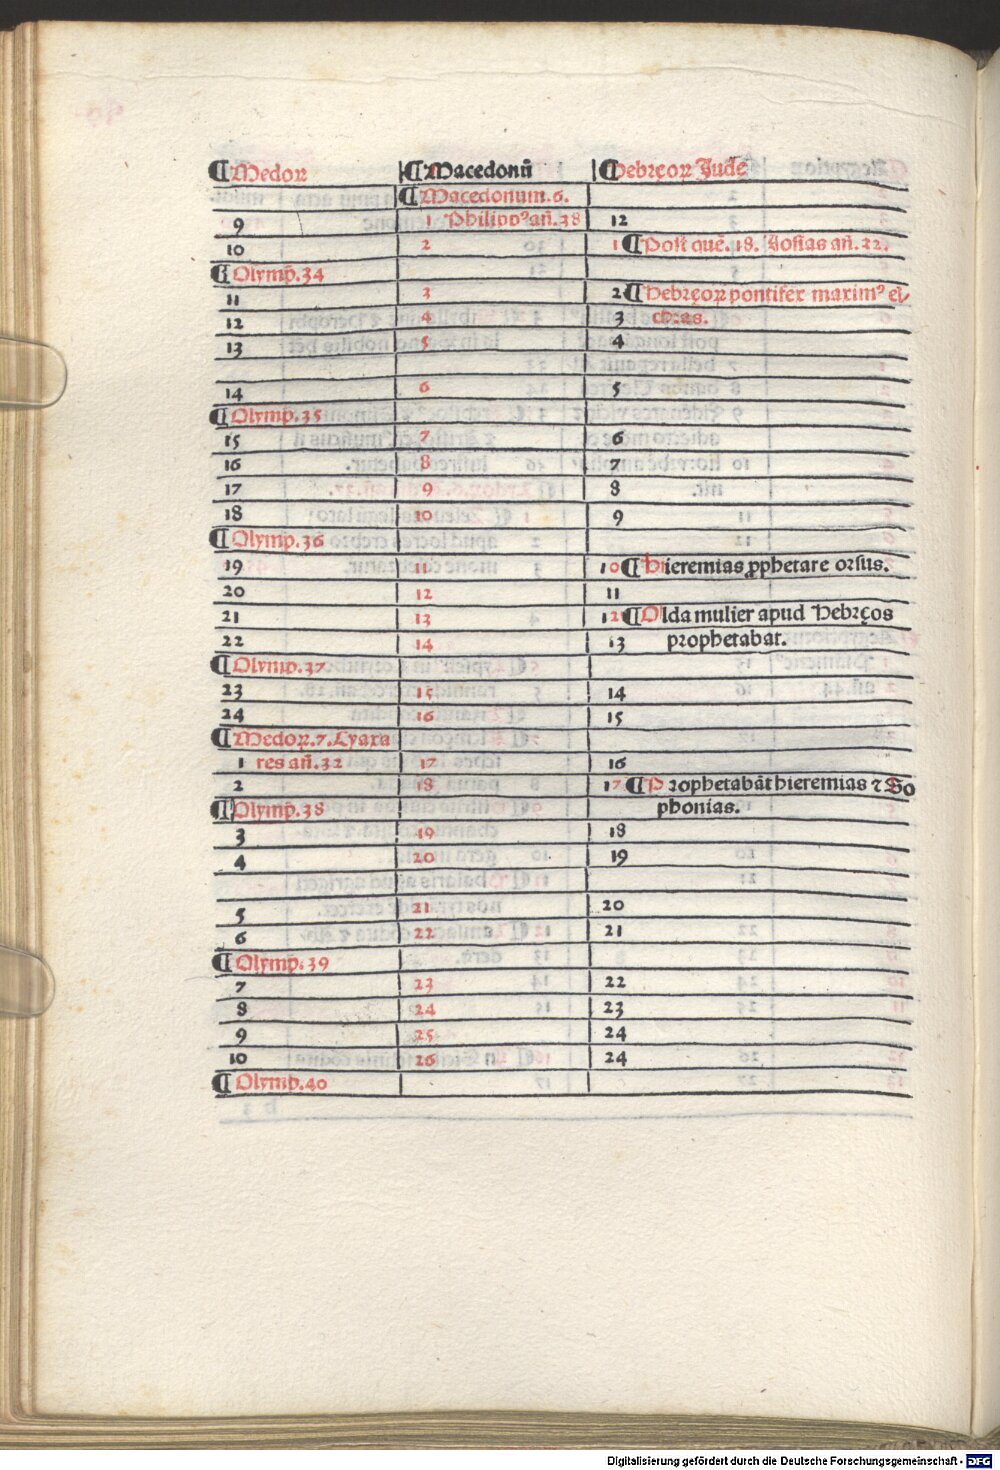 ¶Medoꝝ ¶Macedonũ ¶Hebręoꝝ Jude
¶Macedonum.6.
9 1 Philippꝰ añ.38 12
10 2 1 ¶Post quẽ.18. Iosias añ.32.
¶Olymp̃.34
11 3 2 ¶Hebręoꝝ pontifex maximꝰ el-
12 4 3 chias.
13 5 4
14 6 5
¶Olymp̃.35
15 7 6
16 8 7
17 9 8
18 10 9
¶Olymp.36
19 11 10 ¶Hieremias ꝓphetare orsus.
20 12 11
21 13 12 ¶Olda mulier apud Hebręos
22 14 13 prophetabat.
¶Olymp.37
23 15 14
24 16 15
¶Medoꝝ.7.Cyaxa
1 res añ.32 17 16
2 18 17 ¶Prophetabãt hieremias ⁊ So
¶Olymp̃.38 phonias.
3 19 18
4 20 19
5 21 20
6 22 21
¶Olymp̃.39
7 23 22
8 24 23
9 25 24
10 26 24
¶Olymp.40
Digitalisierung gefördert durch die Deutsche Forschungsgemeinschaft - DFG